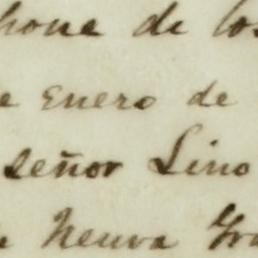 hone de los
e enero de
señor Lino
a Neuva Gra